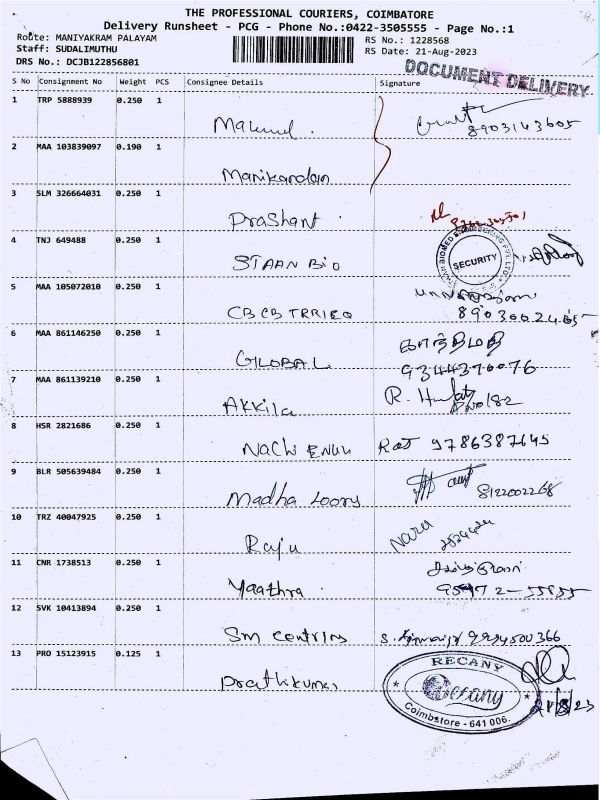 THE PROFESSIONAL COURIERS, COIMBATORE
Delivery Runsheet - PCG - Phone No.:0422-3505555 - Page No.:1
Route: MANIYAKRAM PALAYAM
RS No.: 1228568
Staff: SUDALIMUTHU
RS Date: 21-Aug-2023
DRS No.: DCJB122856801
DOCUMENT DELIVERY
S No Consignment No Weight PCS Consignee Details Signature
1 TRP 5888939 0.250 1
8903143605
2 MAA 103839097 0.190 1
Manikandan
3 SLM 326664031 0.250 1
Prashant
4 TNJ 649488 0.250 1
STAAN BIO
SECURITY
5 MAA 105072010 0.250 1
6 MAA 861146250 0.250 1
GLOBAL
காந்திமதி
9344370076
7 MAA 861139210 0.250 1
Akkila
R.
8 HSR 2821686 0.250 1
9786387645
9 BLR 505639484 0.250 1
Madha
8122002268
10 TRZ 40047925 0.250 1
Raju
11 CNR 1738513 0.250 1
Yaathra
12 SVK 10413894 0.250 1
Sm
9994500366
13 PRO 15123915 0.125 1
Prathkumar
RECANY
Recany
Coimbatore - 641 006.
21/8/23